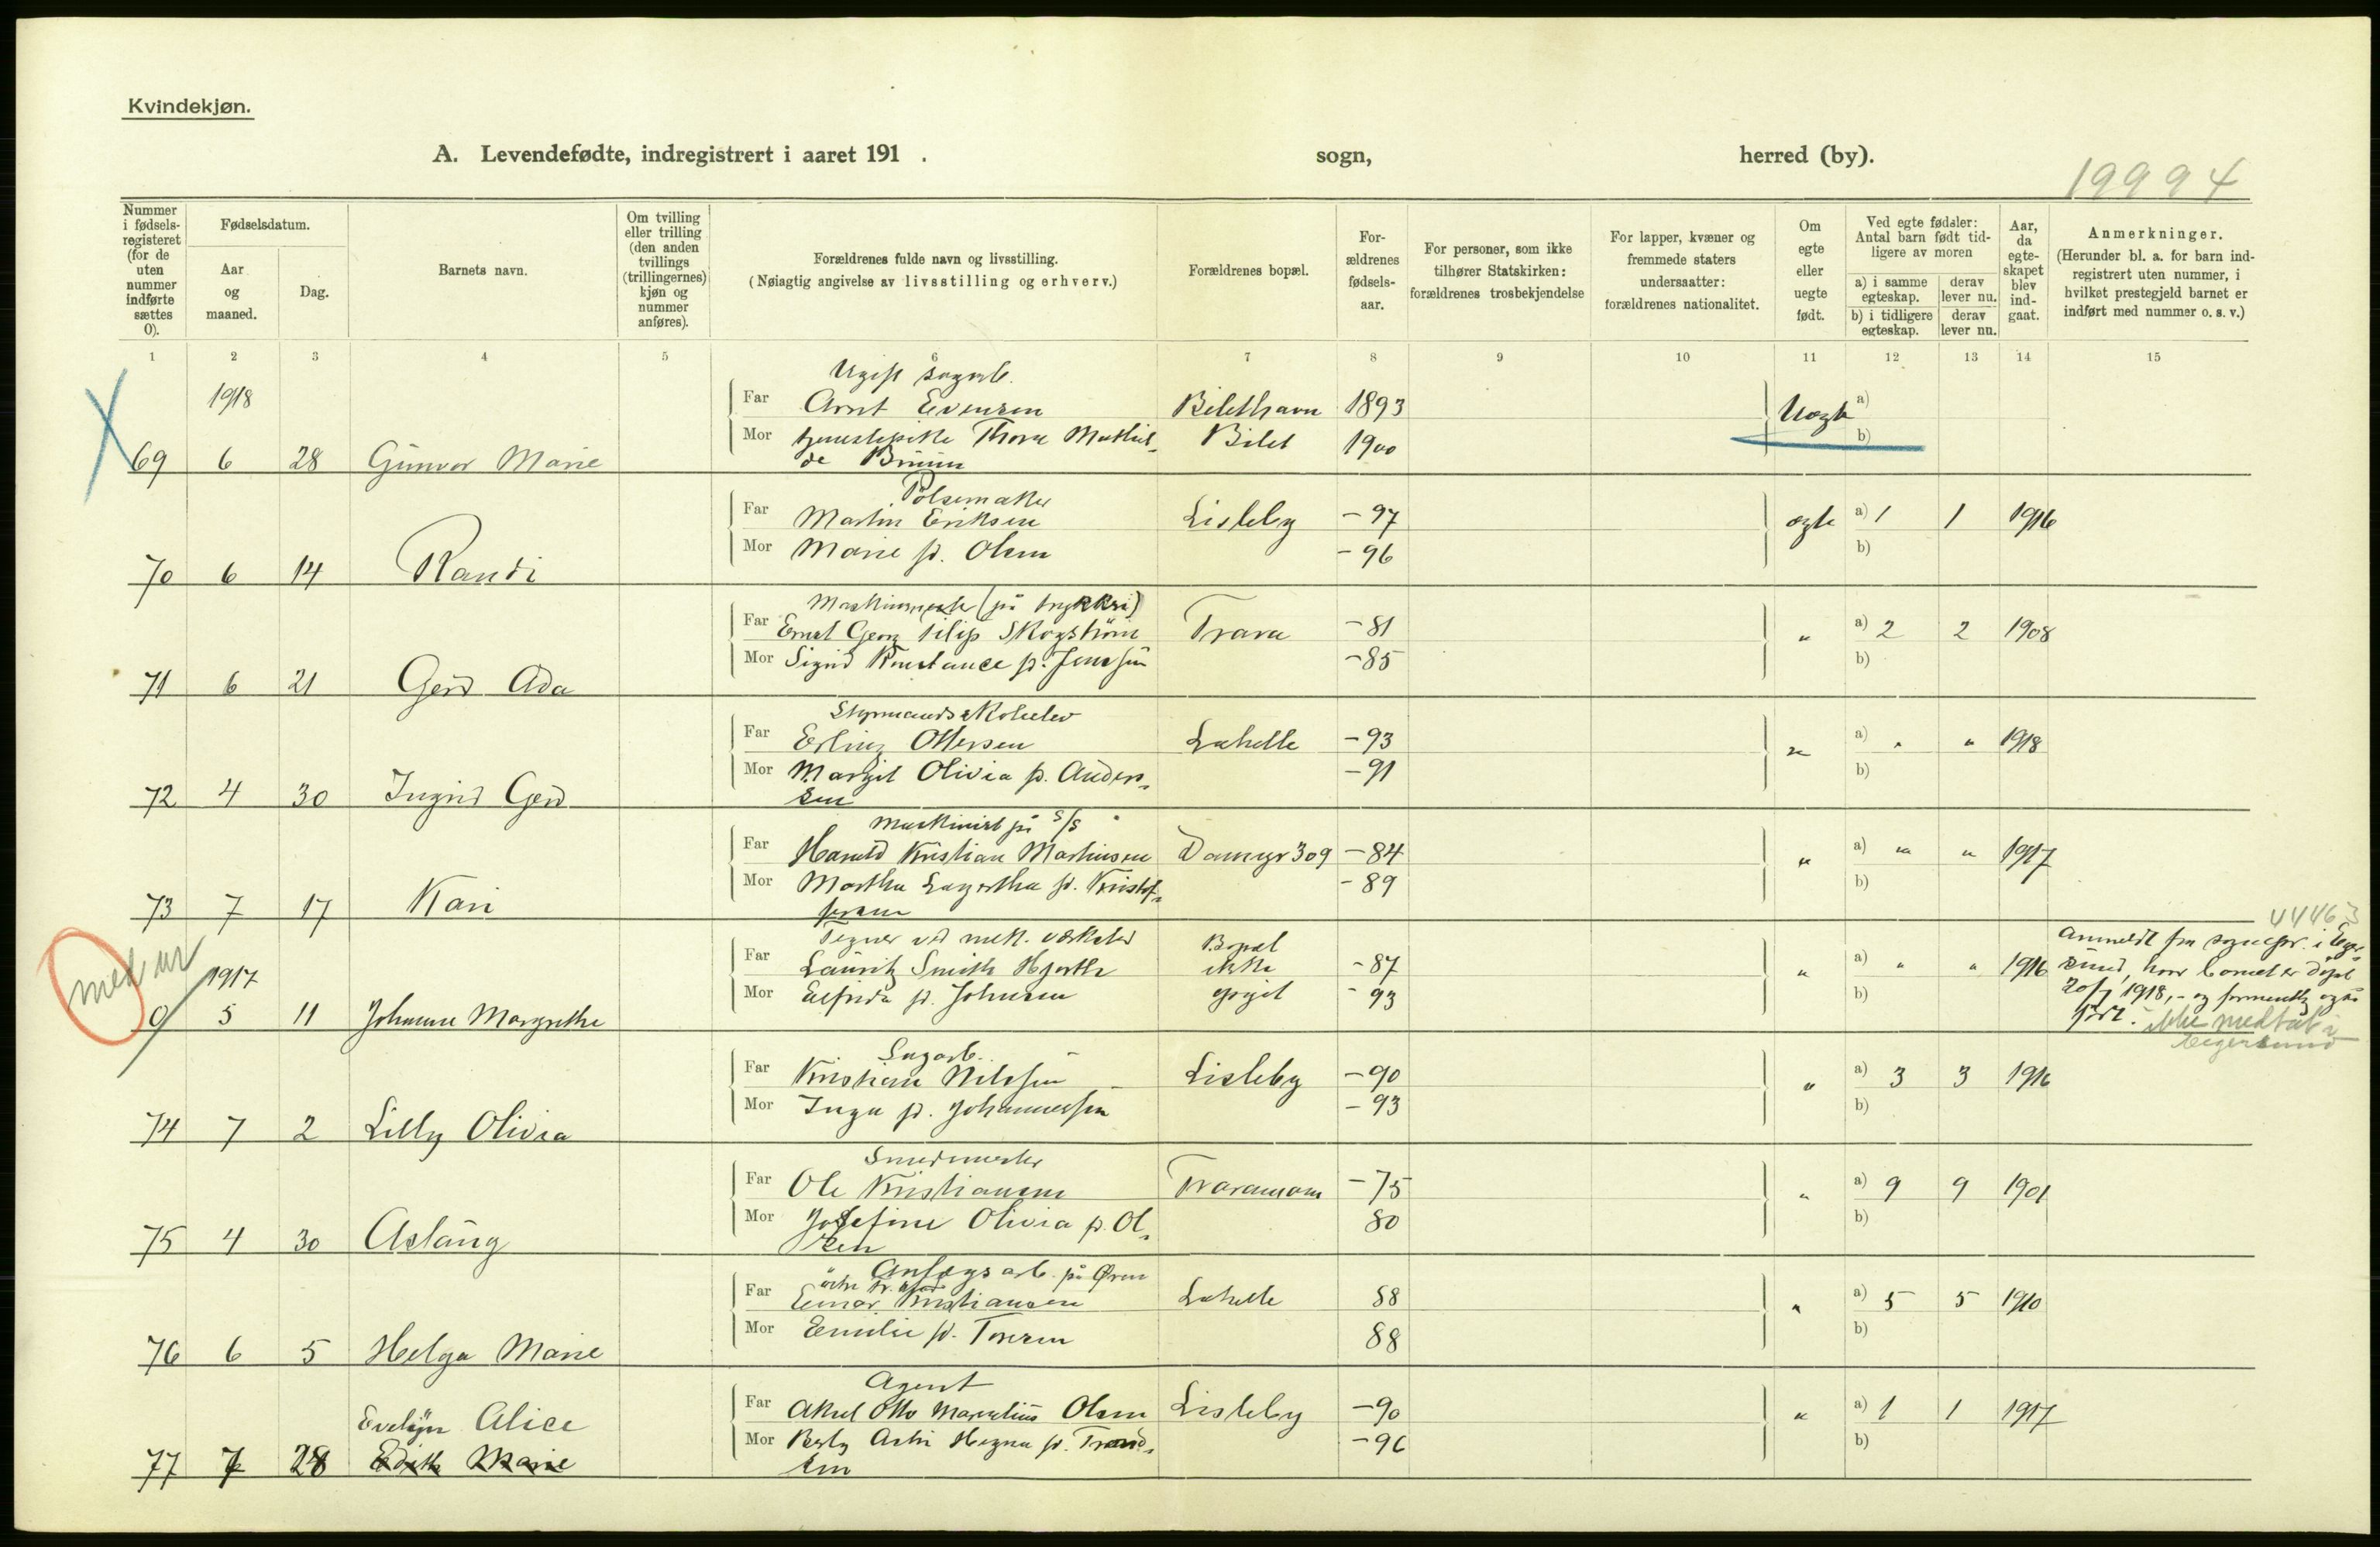 Kvindekjøn.
A. Levendefødte, indregistrert i aaret 191 . sogn, herred (by).
19994
Nummer i fødsels-registeret (for de uten nummer indførte sættes 0).
Fødselsdatum.
Aar og maaned.
Dag.
Barnets navn.
Om tvilling eller trilling (den anden tvillings (trillingernes) kjøn og nummer anføres).
Forældrenes fulde navn og livsstilling.
(Nøiagtig angivelse av livsstilling og erhverv.)
Forældrenes bopæl.
For-ældrenes fødsels-aar.
For personer, som ikke tilhører Statskirken: forældrenes trosbekjendelse
For lapper, kvæner og fremmede staters undersaatter: forældrenes nationalitet.
Om egte eller uegte født.
Ved egte fødsler: Antal barn født tid-ligere av moren
a) i samme egteskap.
derav lever nu.
b) i tidligere egteskap.
derav lever nu.
Aar, da egte-skapet blev ind-gaat.
Anmerkninger.
(Herunder bl. a. for barn ind-registrert uten nummer, i hvilket prestegjeld barnet er indført med nummer o. s. v.)
1 2 3 4 5 6 7 8 9 10 11 12 13 14 15
1918
Ugift sagarb.
Far Arnt Evensen Bilethavn 1893 Uegte a)
Mor tjenestepike Thora Mathil- Bilet 1900 b)
69 6 28 Gunvor Marie de Bruun
Pølsemaker
Far Martin Eriksen Lisleby -97 egte a) 1 1 1916
Mor Marie f. Olsen -96 b)
70 6 14 Randi
Maskinmester (på trykkeri)
Far Ernst Georg Filip Skogstrøm Trara -81 " a) 2 2 1908
Mor Sigrid Konstance f. Jenssen -85 b)
71 6 21 Gerd Ada
Styrmandsskoleelev
Far Erling Ottersen Lahelle -93 " a) " " 1918
Mor Margit Olivia f. Anders- -91 b)
72 4 30 Ingrid Gerd sen
Maskinist på S/S
Far Harald Kristian Martinsen Dammyr 309 -84 " a) " " 1917
Mor Martha Lagertha f. Kristof- -89 b)
73 7 17 Kari fersen
44463
med ur
1917
Tegner ved mek. værksted
Far Lauritz Smith Hjorth Bopæl ikke -87 " a) " " 1916
Mor Elfrida f. Johnsen opgit -93 b)
0 5 11 Johanne Margrethe
Anmeldt fra sognepr. i Eger-
sund, hvor barnet er døpt
20/7 1918, - og formentlig også
ført. ikke medtat i
Egersund
Sagarb.
Far Kristian Nilssen Lisleby -90 " a) 3 3 1916
Mor Inga f. Johannessen -93 b)
74 7 2 Lilly Olivia
Smedmester
Far Ole Kristiansen Traramoen -75 " a) 9 9 1901
Mor Josefine Olivia f. Ol- 80 b)
75 4 30 Aslaug sen
Anlegsarb. på Øren
Far Einar Kristiansen Lahelle 88 " a) 5 5 1910
Mor Emilie f. Torsen 88 b)
76 6 5 Helga Marie
Agent
Far Aksel Otto Marselius Olsen Lisleby -90 " a) 1 1 1917
Evelyn Alice
Mor Hegna f. Trond- -96 b)
77 7 28 Edith Marie sen